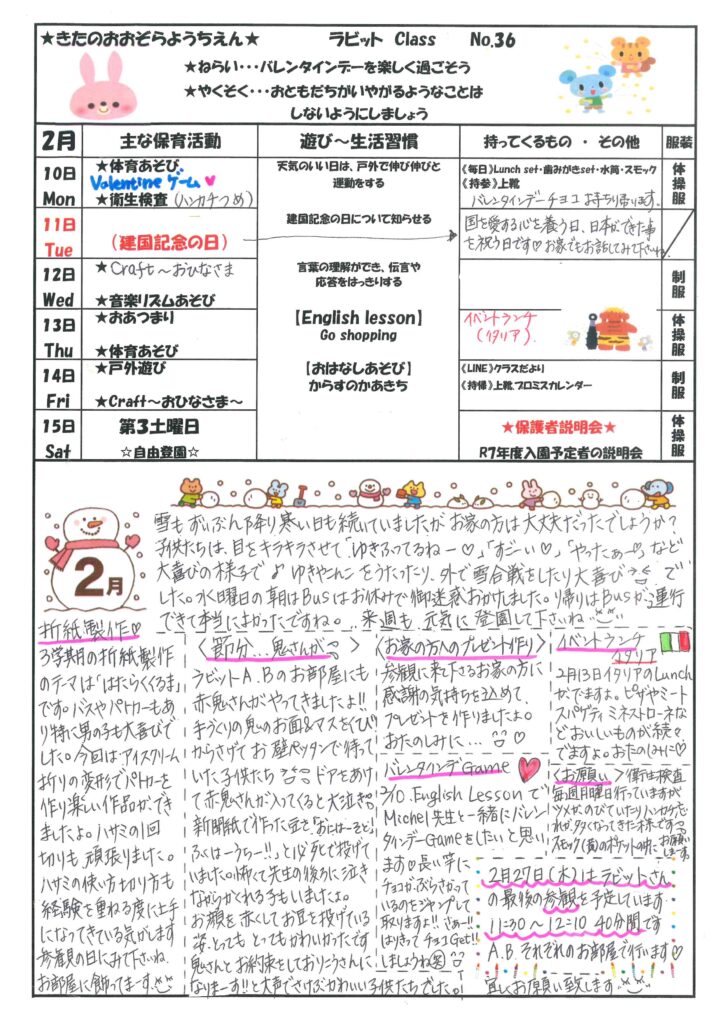 ★きたのおおぞらようちえん★ ラビット Class No.36
★ねらい・・・バレンタインデーを楽しく過ごそう
★やくそく・・・おともだちがいやがるようなことは
しないようにしましょう
2月 主な保育活動 遊び～生活習慣 持ってくるもの ・ その他 服装
10日 Mon
★体育あそび
Valentine ゲーム♥
★衛生検査（ハンカチつめ）
天気のいい日は、戸外で伸び伸びと
運動をする
《毎日》Lunch set・歯みがきset・水筒・スモック
《持参》上靴
バレンタインデーチョコ お持ち帰ります。
体操服
11日 Tue
（建国記念の日）
建国記念の日について知らせる
国を愛する心を養う日、日本ができた事
を祝う日です♡お家でもお話してみて下さいね
12日 Wed
★Craft～おひなさま
★音楽リズムあそび
言葉の理解ができ、伝言や
応答をはっきりする
制服
13日 Thu
★おあつまり
★体育あそび
【English lesson】
Go shopping
イベントランチ
(イタリア)
体操服
14日 Fri
★戸外遊び
★Craft～おひなさま～
【おはなしあそび】
からすのかあきち
《LINE》クラスだより
《持帰》上靴、プロミスカレンダー
制服
15日 Sat
第3土曜日
☆自由登園☆
★保護者説明会★
R7年度入園予定者の説明会
体操服
2月
雪もずいぶん降り寒い日も続いていましたが お家の方は大丈夫だったでしょうか?
子供たちは、目をキラキラさせて「ゆきふってるねー♡」「すごーい♡」「やったぁー♡」など
大喜びの様子で♪ゆきやこんこをうたったり、外で雪合戦をしたり大喜び で
した。水曜日の朝はBusはお休みで御迷惑おかけしました。帰りはBusが運行
できて本当によかったですね。…来週も元気に登園して下さいね
折紙製作♡
3学期の折紙製作
のテーマは「はたらくくるま」
です。バスやパトカーもあ
り特に男の子も大喜びで
した。今回はアイスクリーム
折りの変形でパトカーを
作り楽しい作品ができ
ましたよ。ハサミの1回
切りも頑張りました。
ハサミの使い方切り方も
経験を重ねる度に上手
になってきている気がします
参観の日にみて下さいね。
お部屋に飾ってまーす。
〈節分…鬼さんが〉
ラビットA.Bのお部屋にも
赤鬼さんがやってきましたよ!!
手づくりの鬼のお面&マスをくび
からさげてお壁ペッタンで待って
いた子供たち ドアをあけ
て赤鬼さんが入ってくると大泣き。
新聞紙で作った豆を「おにはーそと」
ふくはーうちー!!」と必死で投げて
いました。怖くて先生の後ろに泣き
ながらかくれる子もいました。
お顔を赤くしてお豆を投げている
姿、とっても とってもかわいかったです
鬼さんとお約束をしておりこうさんに
なりまーす!!と大声でさけぶかわいい子供たちでした。
〈お家の方へのプレゼント作り〉
参観に来て下さるお家の方に
感謝の気持ちを込めて、
プレゼントを作りましたよ。
おたのしみに… ♡
バレンタインデGame
2/10.English Lessonで
Michel先生と一緒にバレン
タインデーGameをしたいと思い
ます♡長い竿に
チョコがぶらさがって
いるのをジャンプして
取りますよ!! さぁー!!
はりきってチョコGet!!
しましょうね
イベントランチ
イタリア
2月13日イタリアのLunch
がでますよ。ピザやミート
スパゲティミネストローネな
どおいしいものが続々
でますよ。おたのしみに♡
〈お願い〉衛生検査
毎週月曜日行っていますが
ツメがのびていたりハンカチ忘
れが多くなってきた様です
スモック(黄)のポケットの中に お願いしまーす
2月27日(木)はラビットさん
の最後の参観を予定しています
11:30～12:10 40分間です
A.B.それぞれのお部屋で行います♡
宜しくお願い致します。